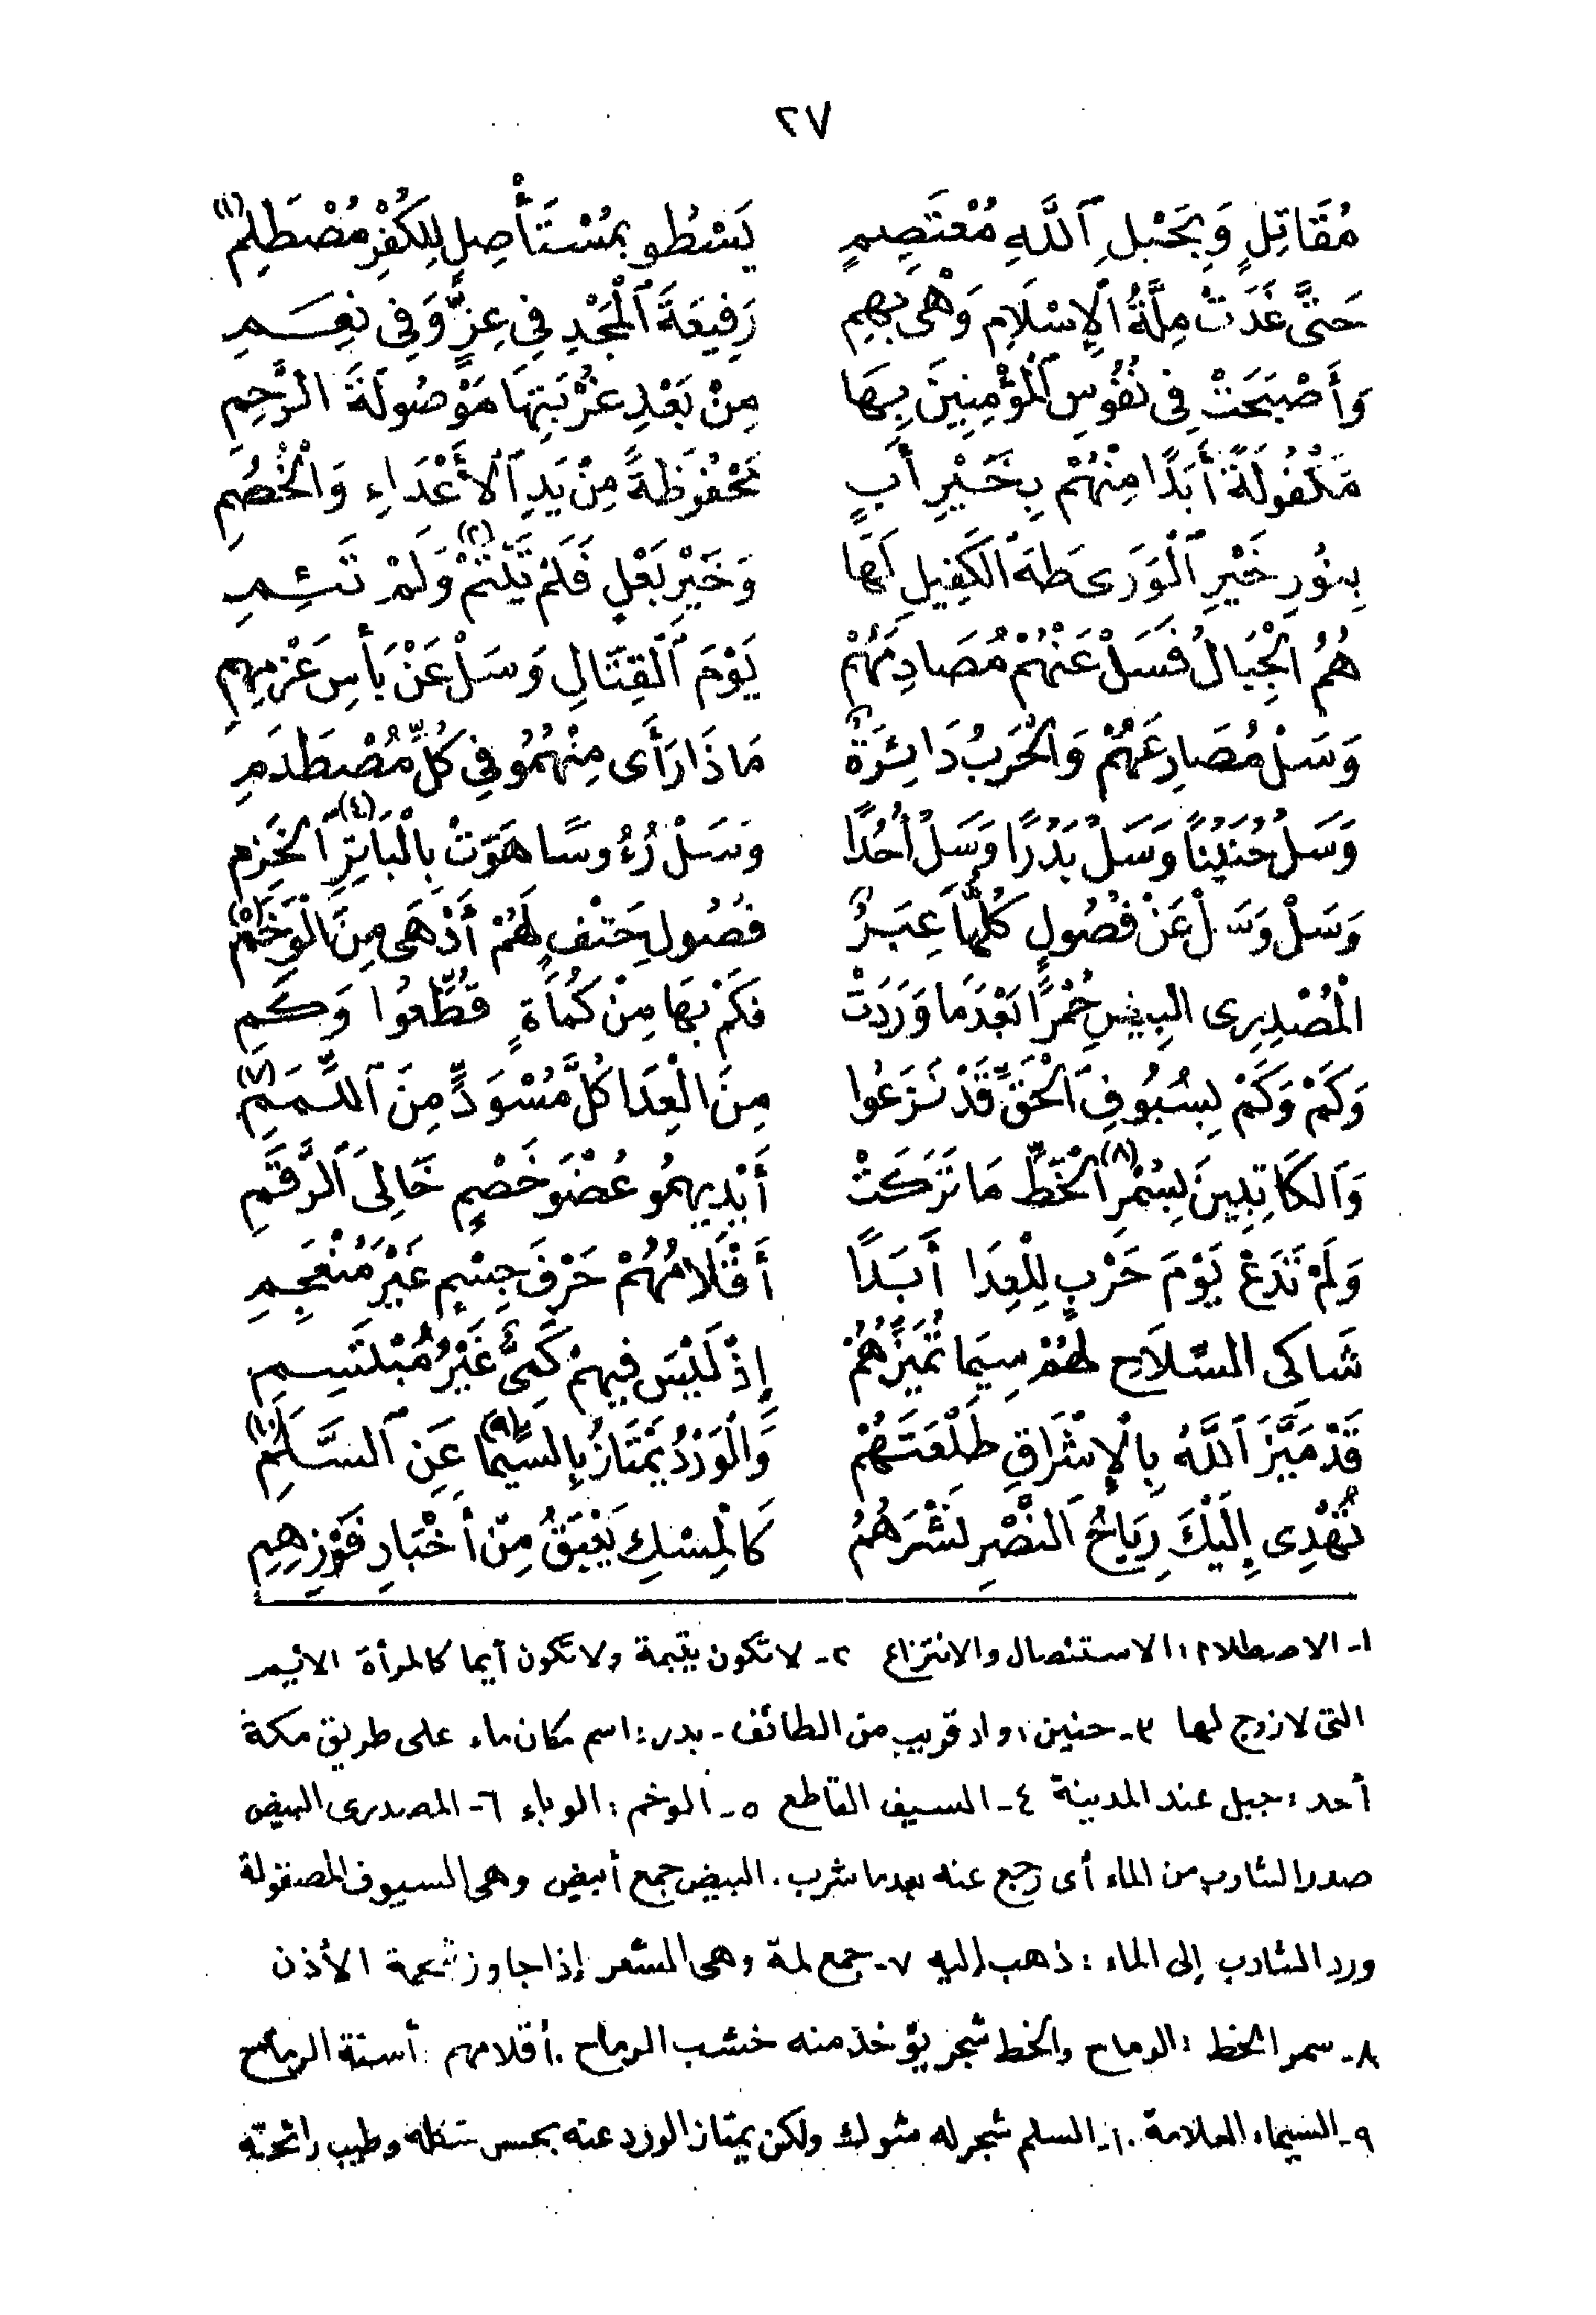 ٢٧
مُقَاتِلٍ وَبِحَبْلِ ٱللَّهِ مُعْتَصِمٍ يَسْطُو بِمُسْتَأْصِلٍ لِلْكُفْرِ مُصْطَلِمِ (١)
حَتَّى غَدَتْ مِلَّةُ ٱلْإِسْلَامِ وَهْىَ بِهِمِ رَفِيعَةَ ٱلْمَجْدِ فِى عِزٍّ وَفِى نِعَمِ
وَأَصْبَحَتْ فِى نُفُوسِ ٱلْمُؤْمِنِينَ بِهَا مِنْ بَعْدِ غُرْبَتِهَا مَوْصُولَةَ الرَّحِمِ
مَكْفُولَةً أَبَدًا مِنْهُمْ بِخَيْرِ أَبٍ مَحْفُوظَةً مِنْ يَدِ ٱلْأَعْدَاءِ وَالْخُصُمِ
بِنُورِ خَيْرِ ٱلْوَرَى طَهَ ٱلْكَفِيلِ لَهَا وَخَيْرِ بَعْلٍ فَلَمْ تَيْتَمْ (٢) وَلَمْ تَئِمِ
هُمُ الْجِبَالُ فَسَلْ عَنْهُمْ مُصَادِمَهُمْ يَوْمَ ٱلْقِتَالِ وَسَلْ عَنْ بَأْسِ عَزْمِهِمِ
وَسَلْ مُصَارِعَهُمْ وَالْحَرْبُ دَائِرَةٌ مَاذَا رَأَى مِنْهُمُو فِى كُلِّ مُصْطَدَمِ
وَسَلْ حُنَيْنًا وَسَلْ بَدْرًا وَسَلْ أُحُدًا (٣) وَسَلْ رُءُوسًا هَوَتْ بِالْبَاتِرِ (٤) الْخَزِمِ
وَسَلْ وَسَلْ عَنْ فُصُولٍ كُلُّهَا عِبَرٌ فُصُولِ حَتْفٍ لَهُمْ أَدْهَى مِنَ الْوَخَمِ (٥)
الْمُصْدِرِى الْبِيضِ حُمْرًا بَعْدَمَا وَرَدَتْ (٦) فَكَمْ بِهَا مِنْ كُمَاةٍ قُطِّعُوا وَكَمِ
وَكَمْ وَكَمْ بِسُيُوفِ ٱلْحَقِّ قَدْ نَزَعُوا مِنَ الْعِدَا كُلَّ مُسْوَدٍّ مِنَ ٱللِّمَمِ (٧)
وَٱلْكَاتِبِينَ بِسُمْرِ (٨) الْخَطِّ مَا تَرَكَتْ أَيْدِيهِمُو عُضْوَ خَصْمٍ خَالِىَ ٱلرَّقَمِ
وَلَمْ تَدَعْ يَوْمَ حَرْبٍ لِلْعِدَا أَبَدًا أَقْلَامُهُمْ حَرْفَ جِسْمٍ غَيْرَ مُنْعَجِمِ
شَاكِى السِّلَاحِ لَهُمْ سِيمَا تُمَيِّزُهُمْ إِذْ لَيْسَ فِيهِمْ كَمِىٌّ غَيْرُ مُبْتَسِمِ
قَدْ مَيَّزَ ٱللَّهُ بِالْإِشْرَاقِ طَلْعَتَهُمْ وَالْوَرْدُ يَمْتَازُ بِالسِّيمَا (٩) عَنِ ٱلسَّلَمِ (١٠)
تُهْدِى إِلَيْكَ رِيَاحُ ٱلنَّصْرِ نَشْرَهُمُ كَالْمِسْكِ يَعْبَقُ مِنْ أَخْبَارِ فَوْزِهِمِ
١- الاصطلام : الاستئصال والانتزاع ٢- لا تكون يتيمة ولا تكون أيما كالمرأة الأيم
التى لا زوج لها ٣- حنين : واد قريب من الطائف - بدر : اسم مكان ماء على طريق مكة
أحد : جبل عند المدينة ٤- السيف القاطع ٥- الوخم : الوباء ٦- المصدرى البيض
صدر الشارب من الماء أى رجع عنه بعدما شرب . البيض جمع أبيض وهى السيوف المصقولة
ورد الشارب إلى الماء : ذهب إليه ٧- جمع لمة وهى الشعر إذا جاوز شحمة الأذن
٨- سمر الخط : الرماح والخط شجر يؤخذ منه خشب الرماح . أقلامهم : أسنة الرماح
٩- السيماء العلامة . ١٠- السلم شجر له شوك ولكن يمتاز الورد عنه بحسن شكله وطيب رائحته